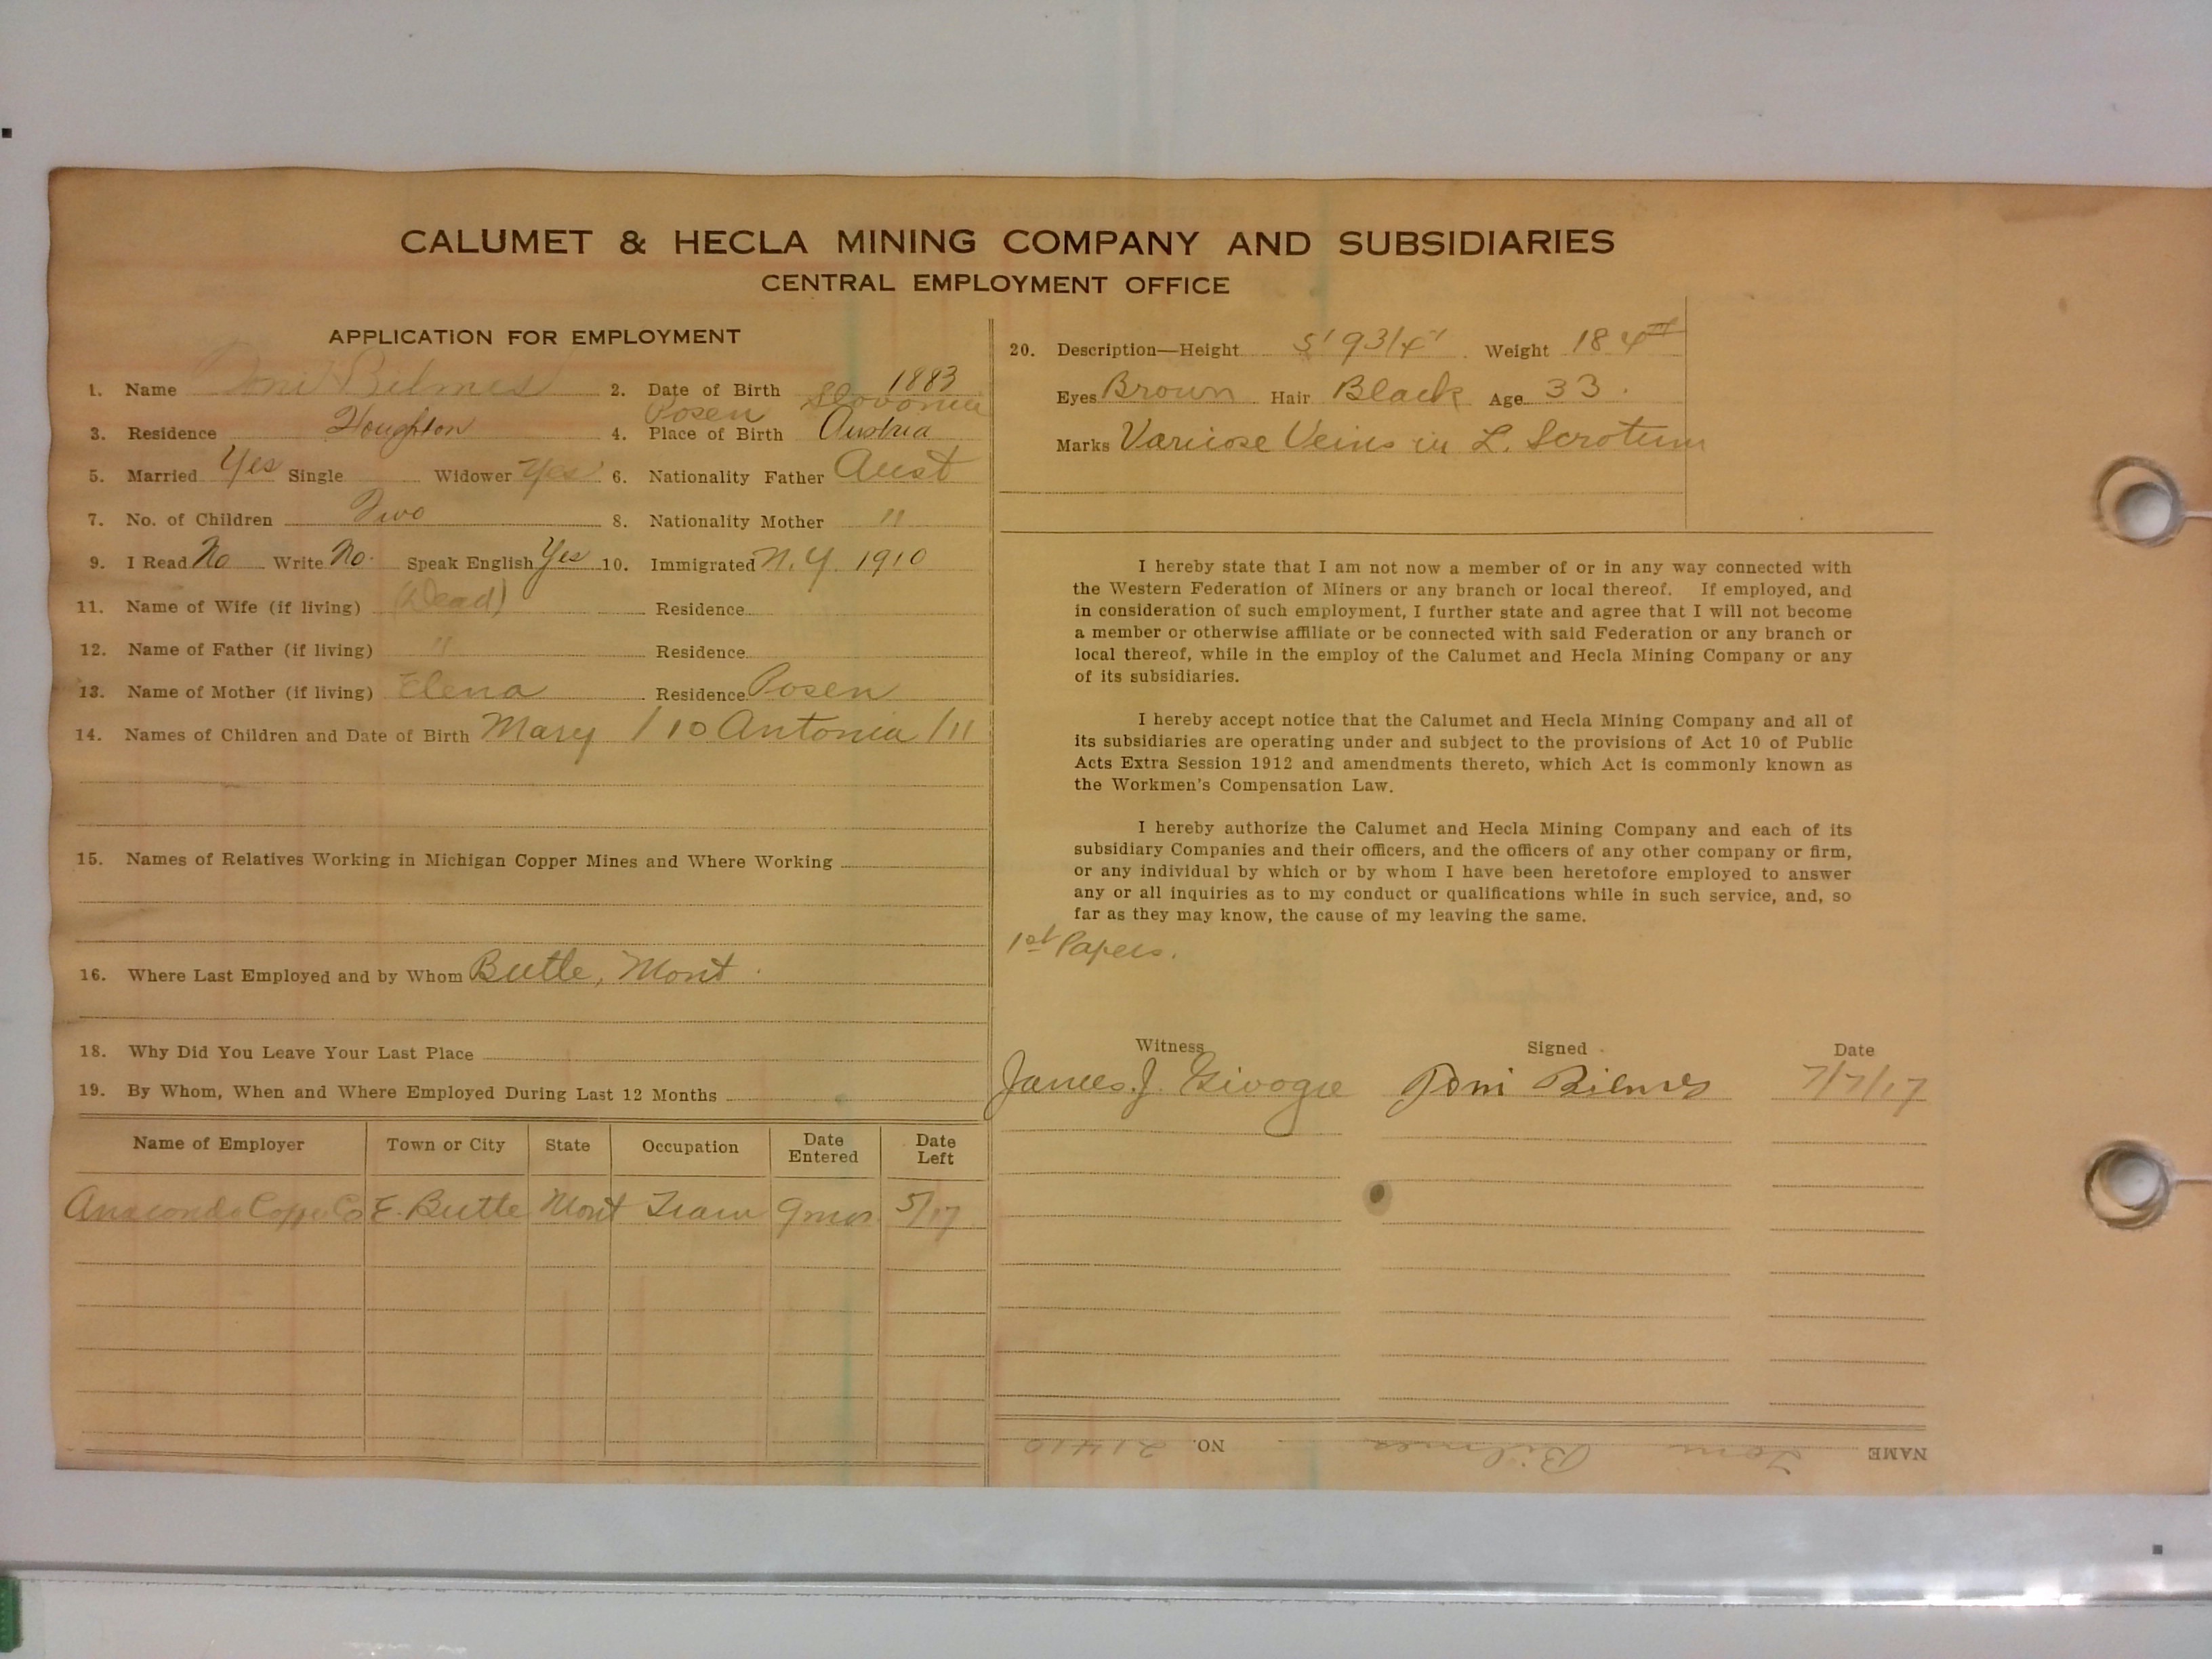 CALUMET & HECLA MINING COMPANY AND SUBSIDIARIES
CENTRAL EMPLOYMENT OFFICE
APPLICATION FOR EMPLOYMENT
1. Name Toni Bilmes 2. Date of Birth 1883
3. Residence Houghton 4. Place of Birth Posen Slovonia Austria
5. Married Yes Single Widower Yes 6. Nationality Father Aust
7. No. of Children Two 8. Nationality Mother "
9. I Read No Write No. Speak English Yes 10. Immigrated N.Y. 1910
11. Name of Wife (if living) (Dead) Residence
12. Name of Father (if living) " Residence
13. Name of Mother (if living) Elena Residence Posen
14. Names of Children and Date of Birth Mary /10 Antonia /11
15. Names of Relatives Working in Michigan Copper Mines and Where Working
16. Where Last Employed and by Whom Butte, Mont.
18. Why Did You Leave Your Last Place
19. By Whom, When and Where Employed During Last 12 Months
Name of Employer Town or City State Occupation Date Entered Date Left
Anaconda Copper Co E. Butte Mont Tram 9 mos. 5/17
20. Description—Height 5' 9 3/4" Weight 184#
Eyes Brown Hair Black Age 33.
Marks Varicose Veins in L. Scrotum
I hereby state that I am not now a member of or in any way connected with
the Western Federation of Miners or any branch or local thereof. If employed, and
in consideration of such employment, I further state and agree that I will not become
a member or otherwise affiliate or be connected with said Federation or any branch or
local thereof, while in the employ of the Calumet and Hecla Mining Company or any
of its subsidiaries.
I hereby accept notice that the Calumet and Hecla Mining Company and all of
its subsidiaries are operating under and subject to the provisions of Act 10 of Public
Acts Extra Session 1912 and amendments thereto, which Act is commonly known as
the Workmen's Compensation Law.
I hereby authorize the Calumet and Hecla Mining Company and each of its
subsidiary Companies and their officers, and the officers of any other company or firm,
or any individual by which or by whom I have been heretofore employed to answer
any or all inquiries as to my conduct or qualifications while in such service, and, so
far as they may know, the cause of my leaving the same.
1st Papers.
Witness Signed Date
James J. Toni Bilmes 7/7/17
NAME Toni Bilmes NO. 21410